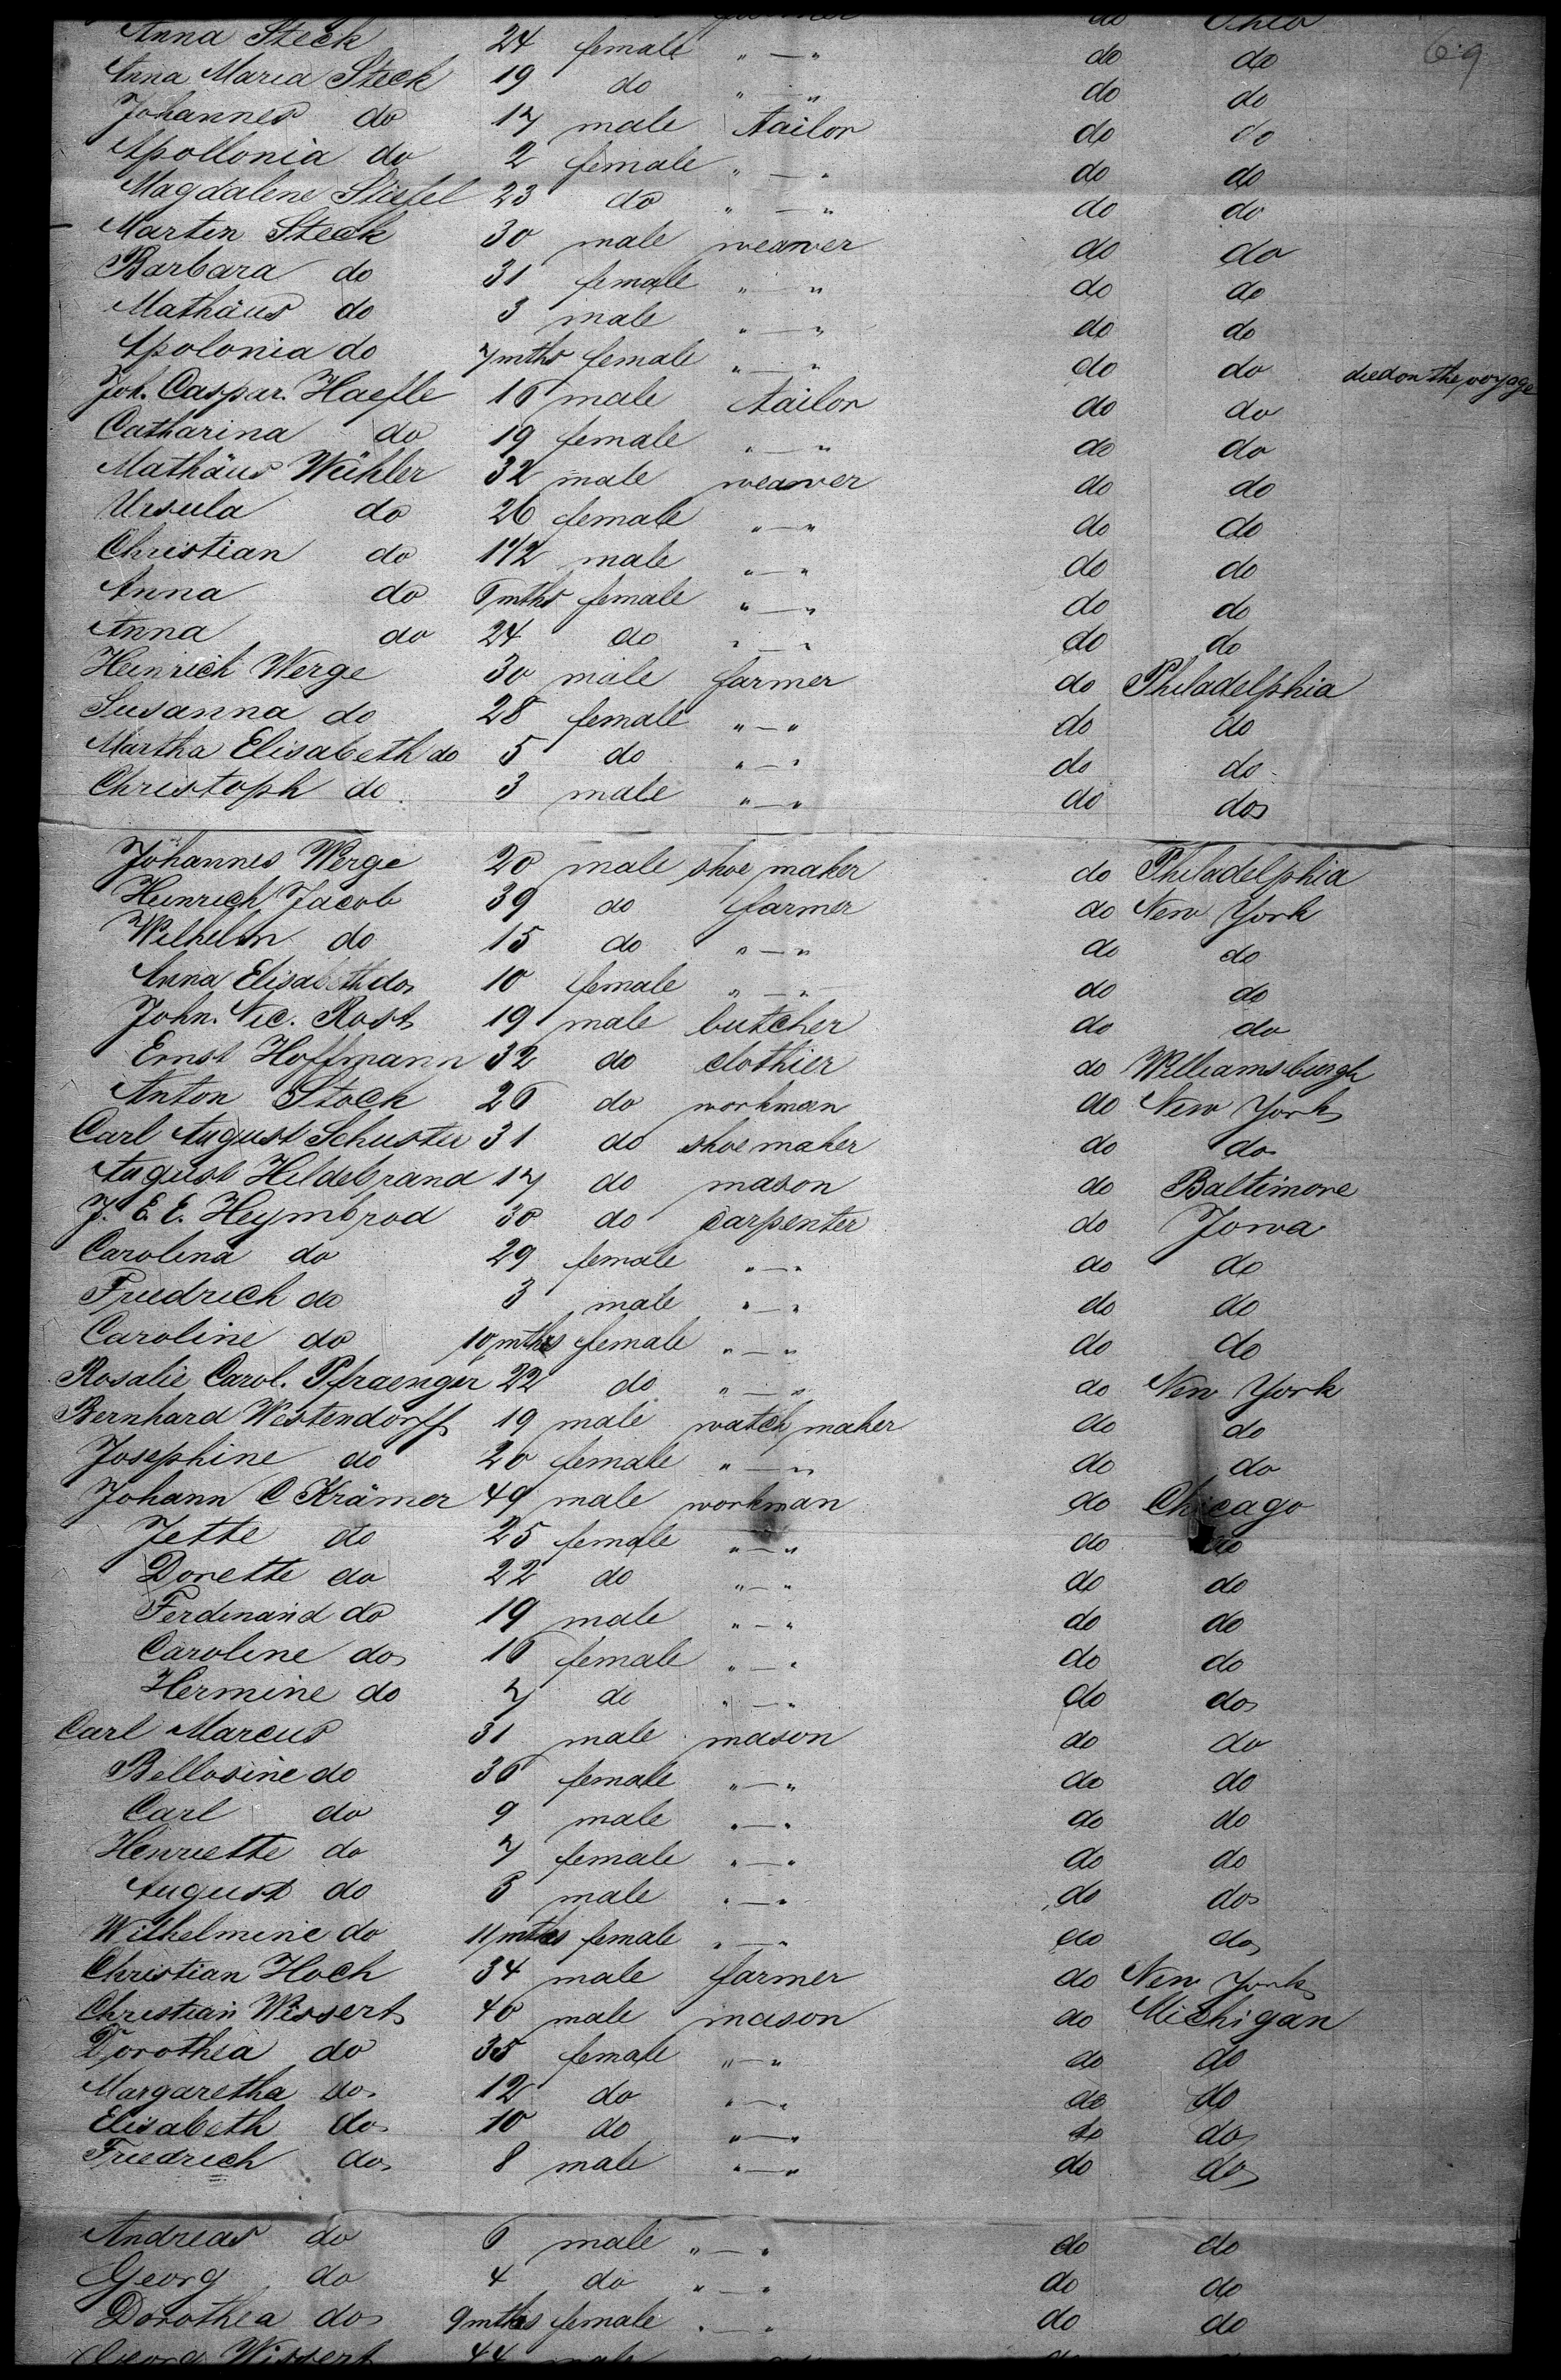 farmer do Ohio
Anna Steck 24 female " — " do do 69
Anna Maria Steck 19 do " — " do do
Johannes do 17 male tailor do do
Apollonia do 2 female " — " do do
Magdalene Stiefel 23 do " — " do do
Marten Steck 30 male weawer do do
Barbara do 31 female " — " do do
Mathäus do 3 male " — " do do
Apolonia do 7 mths female " — " do do died on the voyage
Joh. Caspar. Haefle 16 male tailor do do
Catharina do 19 female " — " do do
Mathäus Wühler 32 male weawer do do
Ursula do 26 female " — " do do
Christian do 1 1/2 male " — " do do
Anna do 6 mths female " — " do do
Anna do 24 do " — " do do
Heinrich Werge 30 male farmer do Philadelphia
Susanna do 28 female " — " do do
Martha Elisabeth do 5 do " — " do do
Christoph do 3 male " — " do do
Johannes Werge 20 male shoe maker do Philadelphia
Heinrich Jacob 39 do farmer do New York
Wilhelm do 15 do " — " do do
Anna Elisabeth do 10 female " — " do do
John. Nic. Rost 19 male butcher do do
Ernst Hoffmann 32 do clothier do Williamsburgh
Anton Stock 26 do workman do New York
Carl August Schuster 31 do shoe maker do do
August Hildebrand 17 do mason do Baltimore
J. E. E. Heymbrod 30 do carpenter do Jowa
Carolina do 29 female " — " do do
Friedrich do 3 male " — " do do
Caroline do 10 mths female " — " do do
Rosalie Carol. Pfraenger 22 do " — " do New York
Bernhard Westendorff 19 male watch maker do do
Josephine do 20 female " — " do do
Johann C Krämer 49 male workman do Chicago
Jette do 25 female " — " do do
Dorette do 22 do " — " do do
Ferdinand do 19 male " — " do do
Caroline do 16 female " — " do do
Hermine do 7 do " — " do do
Carl Marcus 31 male mason do do
Bellosine do 36 female " — " do do
Carl do 9 male " — " do do
Henriette do 7 female " — " do do
August do 5 male " — " do do
Wilhelmine do 11 mths female " — " do do
Christian Hoch 34 male farmer do New York
Christian Wissert 40 male mason do Michigan
Dorothea do 35 female " — " do do
Margaretha do 12 do " — " do do
Elisabeth do 10 do " — " do do
Friedrich do 8 male " — " do do
Andreas do 6 male " — " do do
Georg do 4 do " — " do do
Dorothea do 9 mths female " — " do do
Georg Wissert 44 male do do